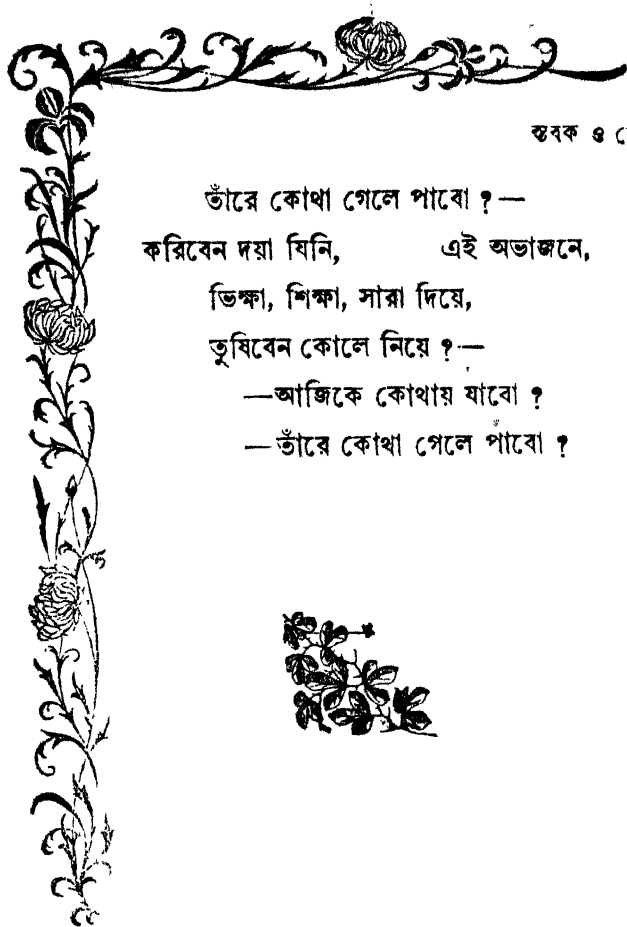 স্তবক ও
তাঁরে কোথা গেলে পাবো ?—
করিবেন দয়া যিনি, এই অভাজনে,
ভিক্ষা, শিক্ষা, সারা দিয়ে,
তুষিবেন কোলে নিয়ে ?—
—আজিকে কোথায় যাবো ?
—তাঁরে কোথা গেলে পাবো ?